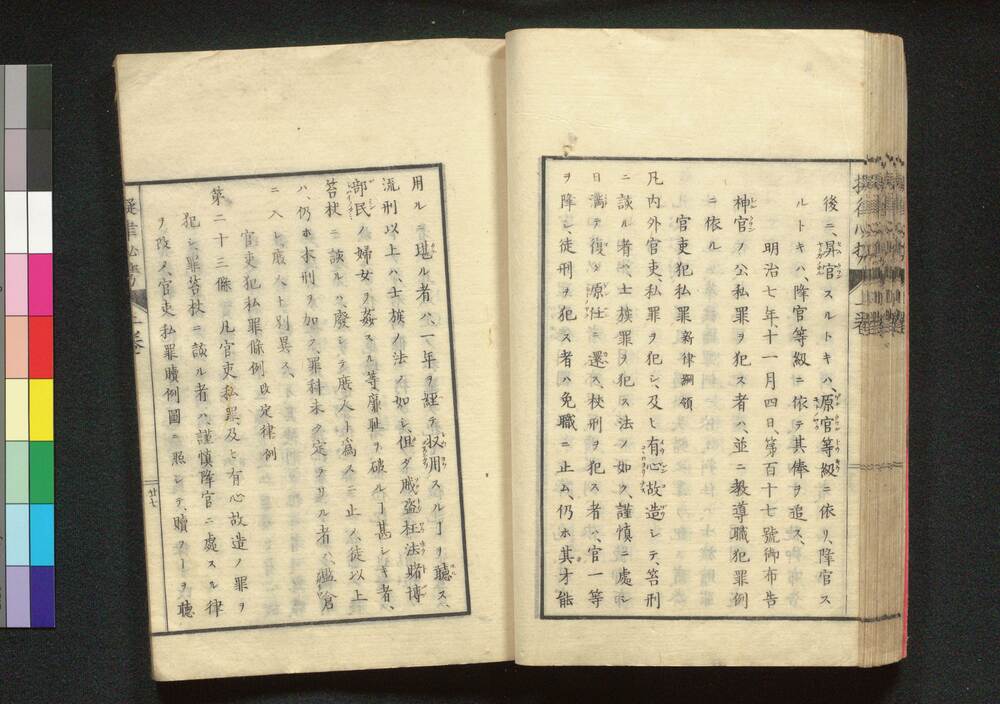 後ニ、昇官スルトキハ、原官等級ニ依リ、降官ス
ルトキハ、降官等級ニ依テ其俸ヲ追ス、
明治七年、十一月四日、第百十七號御布告
神官ノ公私罪ヲ犯ス者ハ、並ニ教導職犯罪例
ニ依ル
官吏犯私罪 新律綱領
凡内外官吏、私罪ヲ犯シ、及ヒ有心故造シテ、笞刑
ニ該ル者ハ、士族罪ヲ犯ス法ノ如ク、謹慎ニ處ル
日満テ復タ原任ニ還ス、杖刑ヲ犯ス者ハ、官一等
ヲ降シ、徒刑ヲ犯ス者ハ免職ニ止ム、仍ホ其才能
用ルニ堪ル者ハ、一年ヲ経テ収用スルヿヲ聴ス、
流刑以上ハ、士族ノ法ノ如シ、但ダ賊盗枉法賭博
部民ノ婦女ヲ姦スル等廉耻ヲ破ルヿ甚シキ者、
笞杖ニ該ルハ、廢シテ庶人ト為スニ止メ、徒以上
ハ、仍ホ本刑ヲ加フ、罪科未タ定ラサル者ハ、監倉
ニ入レ、庶人ト別異ス、
官吏犯私罪條例 改定律例
第二十三條 凡官吏私罪、及ヒ有心故造ノ罪ヲ
犯シ、罪笞杖ニ該ル者ハ、謹慎降官ニ處スル律
ヲ改メ、官吏私罪贖例圖ニ照シテ、贖フヿヲ聴
上巻
廿七